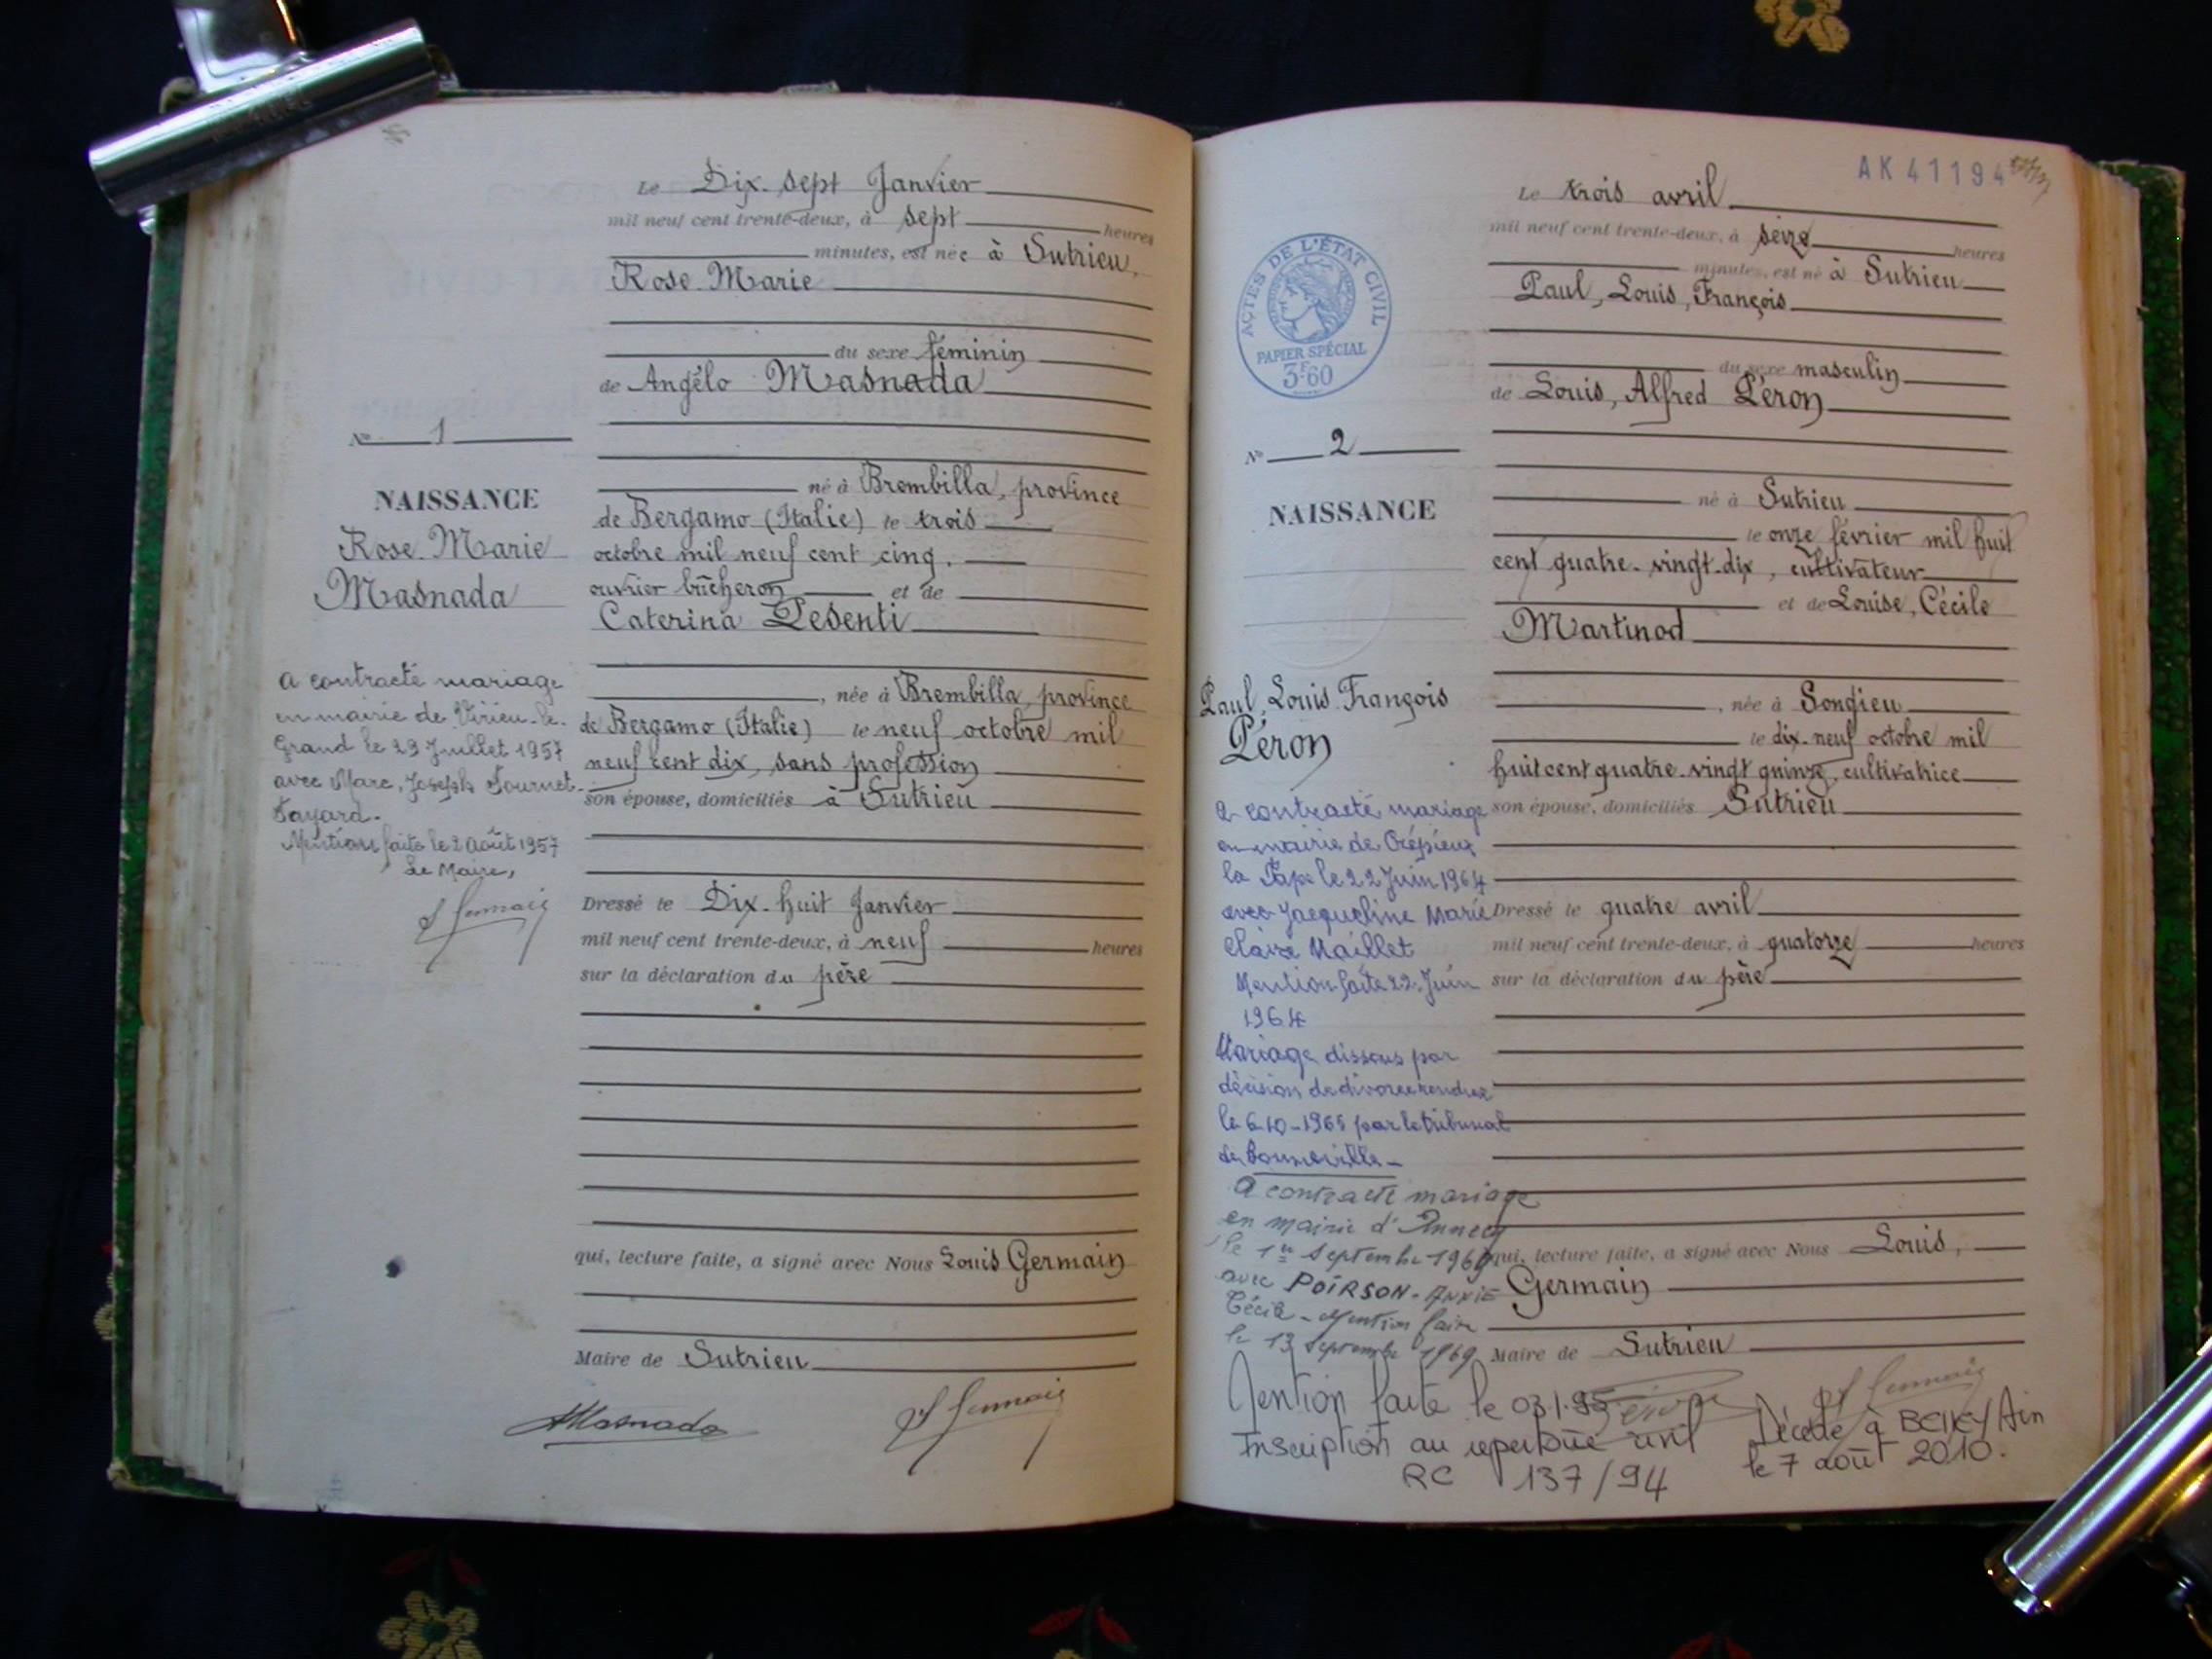 Le Dix-sept Janvier
mil neuf cent trente-deux, à sept heures
minutes, est née à Sutrieu,
Rose Marie
du sexe féminin
de Angélo Masnada
né à Brembilla, province
de Bergamo (Italie) le trois
octobre mil neuf cent cinq,
ouvrier bûcheron et de
Caterina Pesenti
, née à Brembilla, province
de Bergamo (Italie) le neuf octobre mil
neuf cent dix, sans profession
son épouse, domiciliés à Sutrieu
Dressé le Dix-huit Janvier
mil neuf cent trente-deux, à neuf heures
sur la déclaration du père
qui, lecture faite, a signé avec Nous Louis Germain
Maire de Sutrieu
AMasnada
L Germain
No 1
NAISSANCE
Rose Marie
Masnada
a contracté mariage
en mairie de Virieu-le-
Grand le 29 Juillet 1957
avec Marc, Joseph Tournet-
Fayard.
Mention faite le 2 Août 1957
Le Maire,
L Germain
AK41194
Le trois avril
mil neuf cent trente-deux, à seize heures
minutes, est né à Sutrieu
Paul, Louis, François
du sexe masculin
de Louis, Alfred Péron
né à Sutrieu
le onze février mil huit
cent quatre-vingt-dix, cultivateur
et de Louise, Cécile
Martinod
, née à Songieu
le dix-neuf octobre mil
huit cent quatre-vingt quinze, cultivatrice
son épouse, domiciliés Sutrieu
Dressé le quatre avril
mil neuf cent trente-deux, à quatorze heures
sur la déclaration du père
qui, lecture faite, a signé avec Nous Louis,
Germain
Maire de Sutrieu
Péron
L Germain
ACTES DE L'ÉTAT CIVIL
PAPIER SPÉCIAL
3F60
No 2
NAISSANCE
Paul, Louis François
Péron
a contracté mariage
en mairie de Crépieux
la Pape le 22 Juin 1964
avec Jacqueline Marie
Claire Maillet
Mention faite 22 Juin
1964
Mariage dissous par
décision de divorce rendue
le 6-10-1965 par le tribunal
de Bonneville-
a contracté mariage
en mairie d'Annecy
le 1er Septembre 1969
avec POIRSON-Annie
Cécile - Mention faite
le 13 Septembre 1969
Mention faite le 03.1.95
Inscription au repertoire civil
RC 137/94
Décédé à BELLEY/Ain
le 7 août 2010.